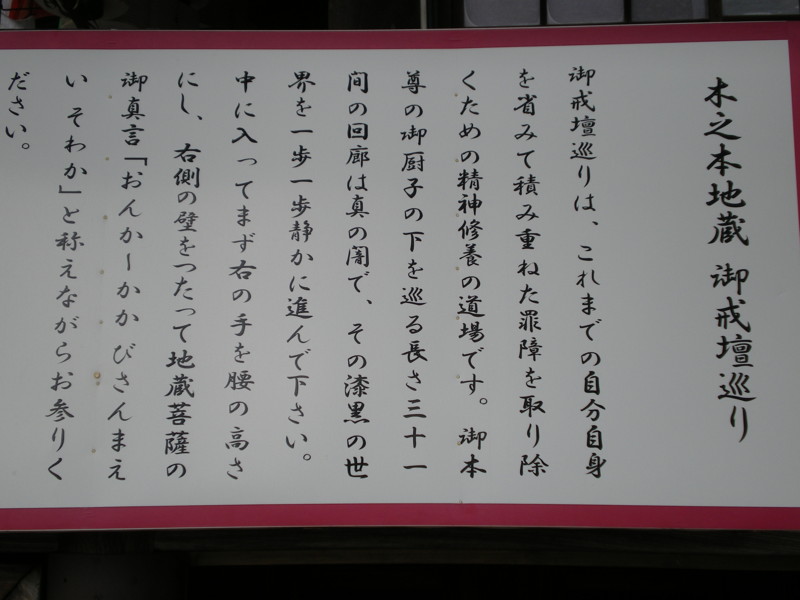 木之本地蔵 御戒壇巡り
御戒壇巡りは、これまでの自分自身
を省みて積み重ねた罪障を取り除
くための精神修養の道場です。御本
尊の御厨子の下を巡る長さ三十一
间の回廊は真の闇で、その漆黒の世
界を一歩一歩静かに進んで下さい。
中に入ってまず右の手を腰の高さ
にし、右側の壁をつたって地蔵菩薩の
御真言「おんかーかか びさんまえ
い そわか」と称えながらお参りく
ださい。